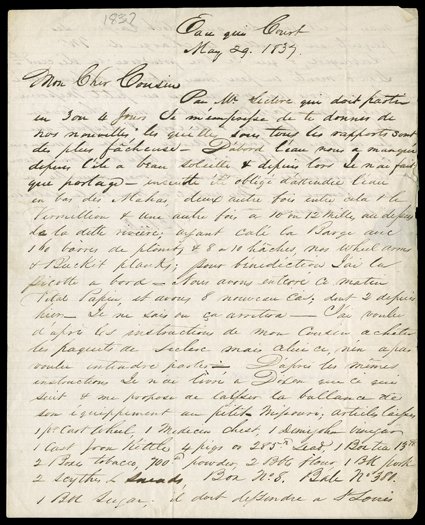 1837
Eau qui Court
May 29. 1837.
Mon Cher Cousin
Par Mr Leclerc qui doit partir
en 3 ou 4 jours Je m'empresse de te donner de
nos nouvelles les quelles sous tous les rapports sont
des plus fâcheuse – D'abord l'eau nous a manquer
depuis l'isle a beau soleille & depuis lors Je n'ai fais
que portage – ensuite obligé d'attendre l'eau
en bas des Mahas, deux autre fois entre cela & le
Vermillion & une autre fois a 10 ou 12 Miles au dessus
de la dite rivière; ayant calé la Barge avec
160 barres de plomb, & 8 a 10 hâches, nos wheel arms
& Bucket planks; pour bénédiction J'ai la
picotte a bord – Nous avons enterré ce matin
Petit Papin, et avons 8 nouveau cas, dont 2 depuis
hier – Je ne sais ou ça arretera – J'ai voulu
d'après les instructions de mon Cousin acheter
les paquets de Leclerc mais n'en a pas
voulu entendre parler – D'après les mêmes
instructions Je n'ai livré a Dixon que ce qui
suit & me propose de laisser la ballance de
son equippement au petit Missouri, articles laissés
1 pr Cart Wheel 1 Medicin Chest, 1 Demijohn vinegar
1 Cast Iron Kettle 4 pigs or 285 lb Lead, 1 Boite
2 tobacco, 700 lb powder, 2 Bbl flour 1 Bbl pork
2 Scythes & Sneads, Box No 8, Bale No 381.
1 Bbl Sugar, d dont dependre a St Louis